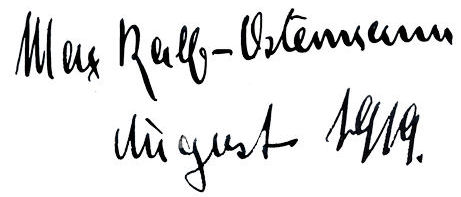 Max Ralf-Ostermann
August 1919.